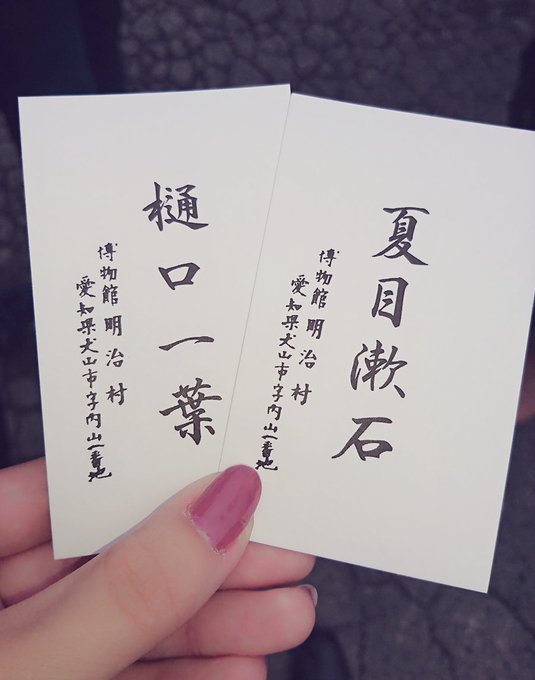 樋口一葉
博物館明治村
愛知県犬山市字内山一番地
夏目漱石
博物館明治村
愛知県犬山市字内山一番地